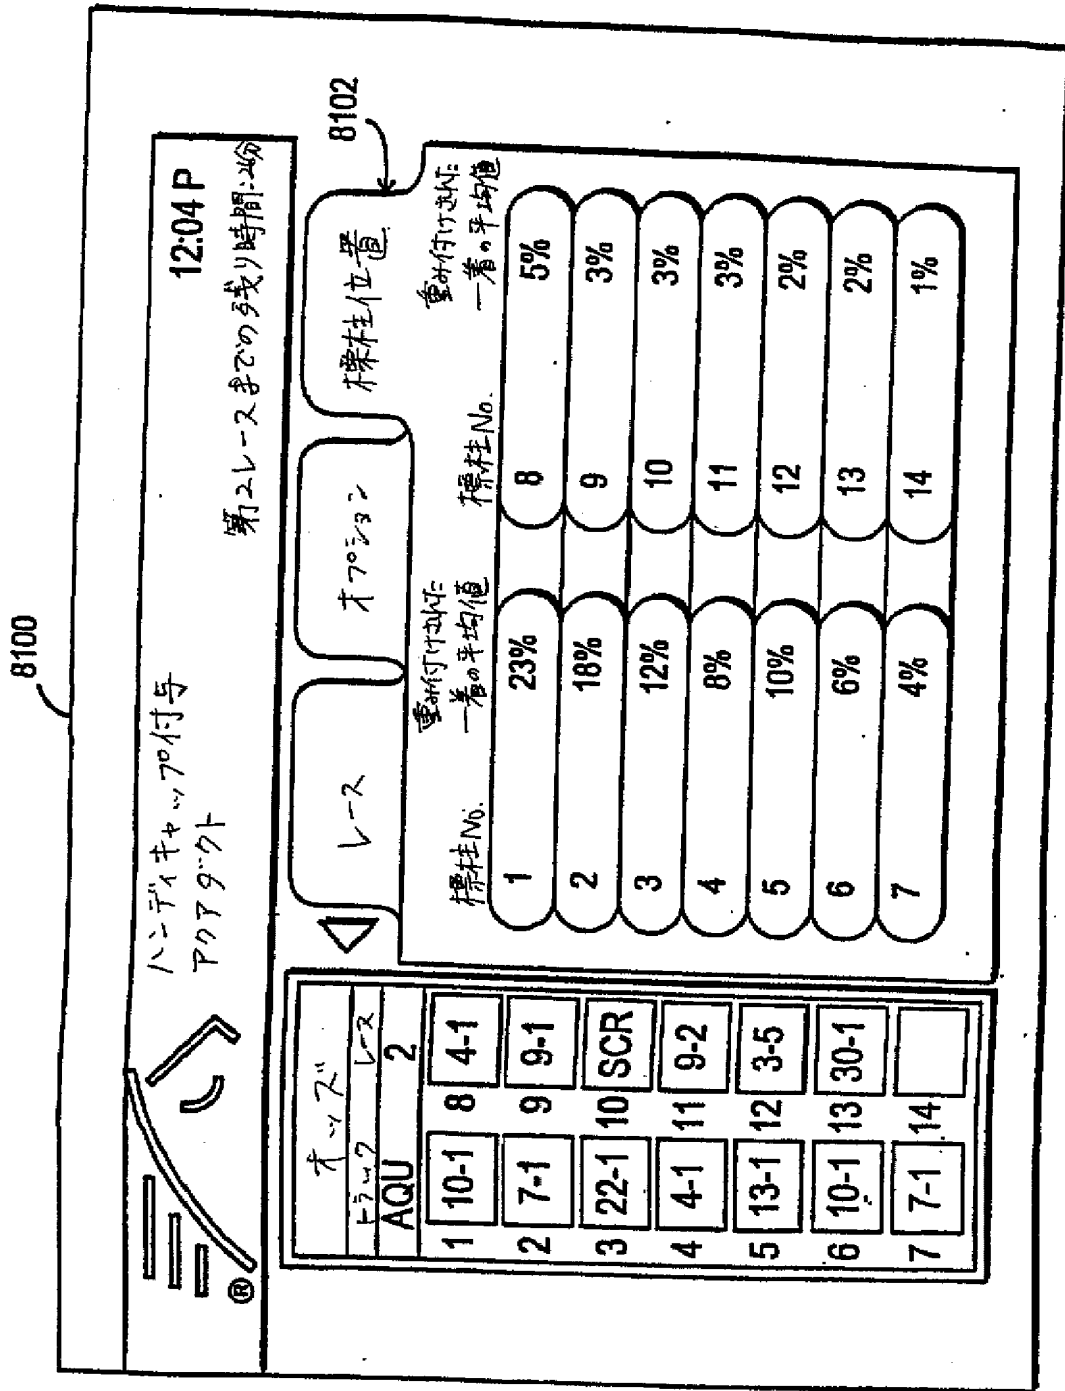 8100
ハンディキャップ付与
アクアダクト
12:04 P
第2レースまでの残り時間:2分
®
オッズ
トラック レース
AQU 2
1 10-1 8 4-1
2 7-1 9 9-1
3 22-1 10 SCR
4 4-1 11 9-2
5 13-1 12 3-5
6 10-1 13 30-1
7 7-1 14
レース
オプション
標柱位置
8102
標柱No. 重み付けされた一着の平均値 標柱No. 重み付けされた一着の平均値
1 23% 8 5%
2 18% 9 3%
3 12% 10 3%
4 8% 11 3%
5 10% 12 2%
6 6% 13 2%
7 4% 14 1%